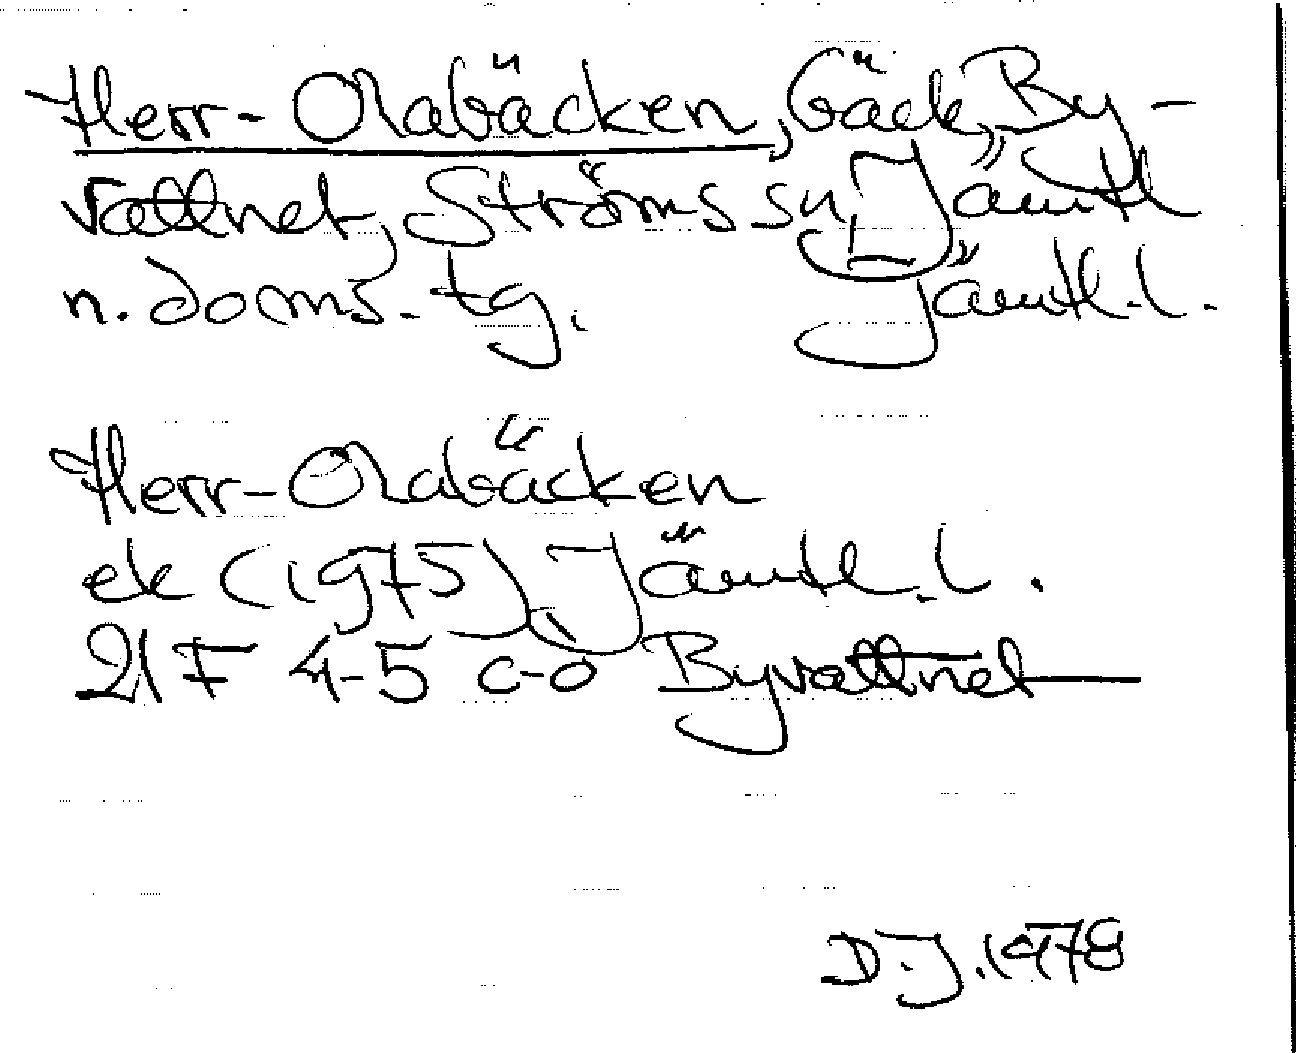 Herr-Olabäcken, bäck, By-
vattnet, Ströms sn, Jämtl
n. doms.-tg. Jämtl.l.
Herr-Olabäcken
ek (1975), Jämtl.l.
21F 4-5 c-d Byvattnet
D.J. 1978